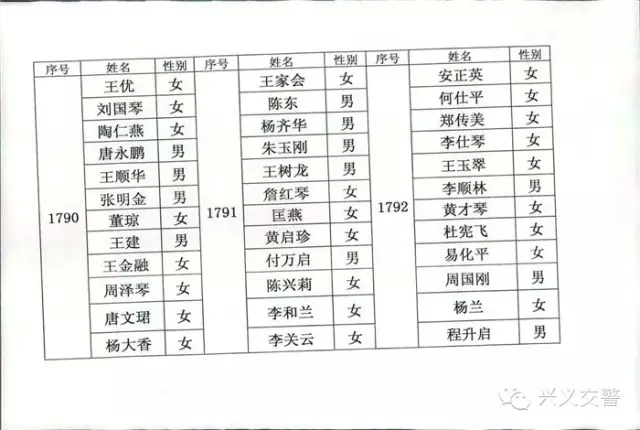 序号 姓名 性别 序号 姓名 性别 序号 姓名 性别
王优 女 王家会 女 安正英 女
刘国琴 女 陈东 男 何仕平 女
陶仁燕 女 杨齐华 男 郑传美 女
唐永鹏 男 朱玉刚 男 李仕琴 女
王顺华 男 王树龙 男 王玉翠 女
张明金 男 詹红琴 女 李顺林 男
1790 董琼 女 1791 匡燕 女 1792 黄才琴 女
王建 男 黄启珍 女 杜宪飞 女
王金融 女 付万启 男 易化平 女
周泽琴 女 陈兴莉 女 周国刚 男
唐文珺 女 李和兰 女 杨兰 女
杨大香 女 李关云 女 程升启 男
兴义交警